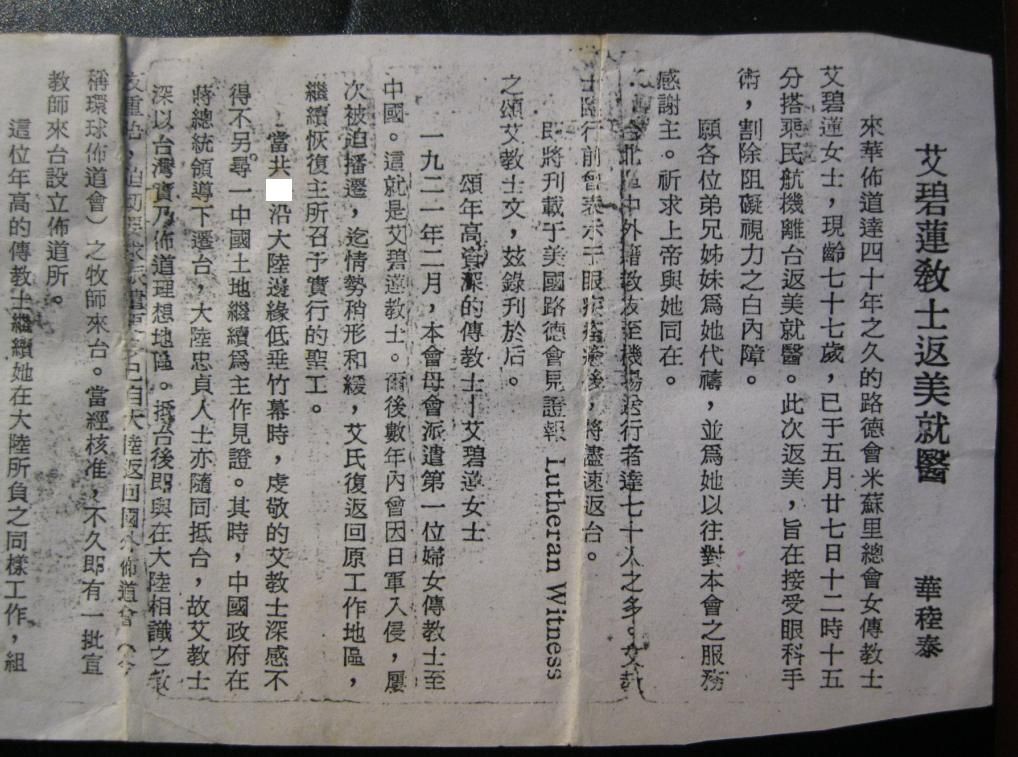 艾碧蓮敎士返美就醫　華稑泰
來華佈道達四十年之久的路德會米蘇里總會女傳教士
艾碧蓮女士，現齡七十七歲，已于五月廿七日十二時十五
分搭乘民航機離台返美就醫。此次返美，旨在接受眼科手
術，割除阻礙視力之白內障。
願各位弟兄姊妹爲她代禱，並爲她以往對本會之服務
感謝主。祈求上帝與她同在。
台北區中外籍教友至機場送行者達七十人之多。艾教
士臨行前曾表示于眼疾痊癒後，將儘速返台。
即將刊載于美國路德會見證報 Lutheran Witness
之頌艾教士文，玆錄刊於后。
頌年高資深的傳教士—艾碧蓮女士
一九二一年二月，本會母會派遣第一位婦女傳教士至
中國。這就是艾碧蓮教士。爾後數年內曾因日軍入侵，屢
次被迫播遷，迄情勢稍形和緩，艾氏復返回原工作地區，
繼續恢復主所召予實行的聖工。
當共 沿大陸邊緣低垂竹幕時，虔敬的艾教士深感不
得不另尋一中國土地繼續爲主作見證。其時，中國政府在
蔣總統領導下遷台，大陸忠貞人士亦隨同抵台，故艾教士
深以台灣實乃佈道理想地區。抵台後即與在大陸相識之教
友重 ，迫切要求 自大陸返回國外佈道會（今
稱環球佈道會）之牧師來台。當經核准，不久即有一批宣
教師來台設立佈道所。
這位年高的傳教士繼續她在大陸所負之同樣工作，組